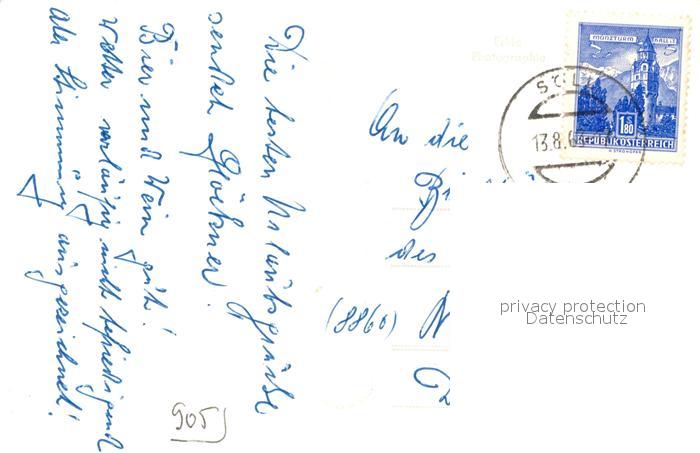 Die besten Urlaubsgrüße
sendet Glöckner.
Bier und Wein gut!
Wetter vorläufig nicht befriedigend
aber Stimmung ausgezeichnet!
An die
des
(8860) N
905
Echte
Photographie
MÜNZTURM HALL I. T.
S 1.80
REPUBLIK ÖSTERREICH
SÖLL
13.8.6
privacy protection
Datenschutz